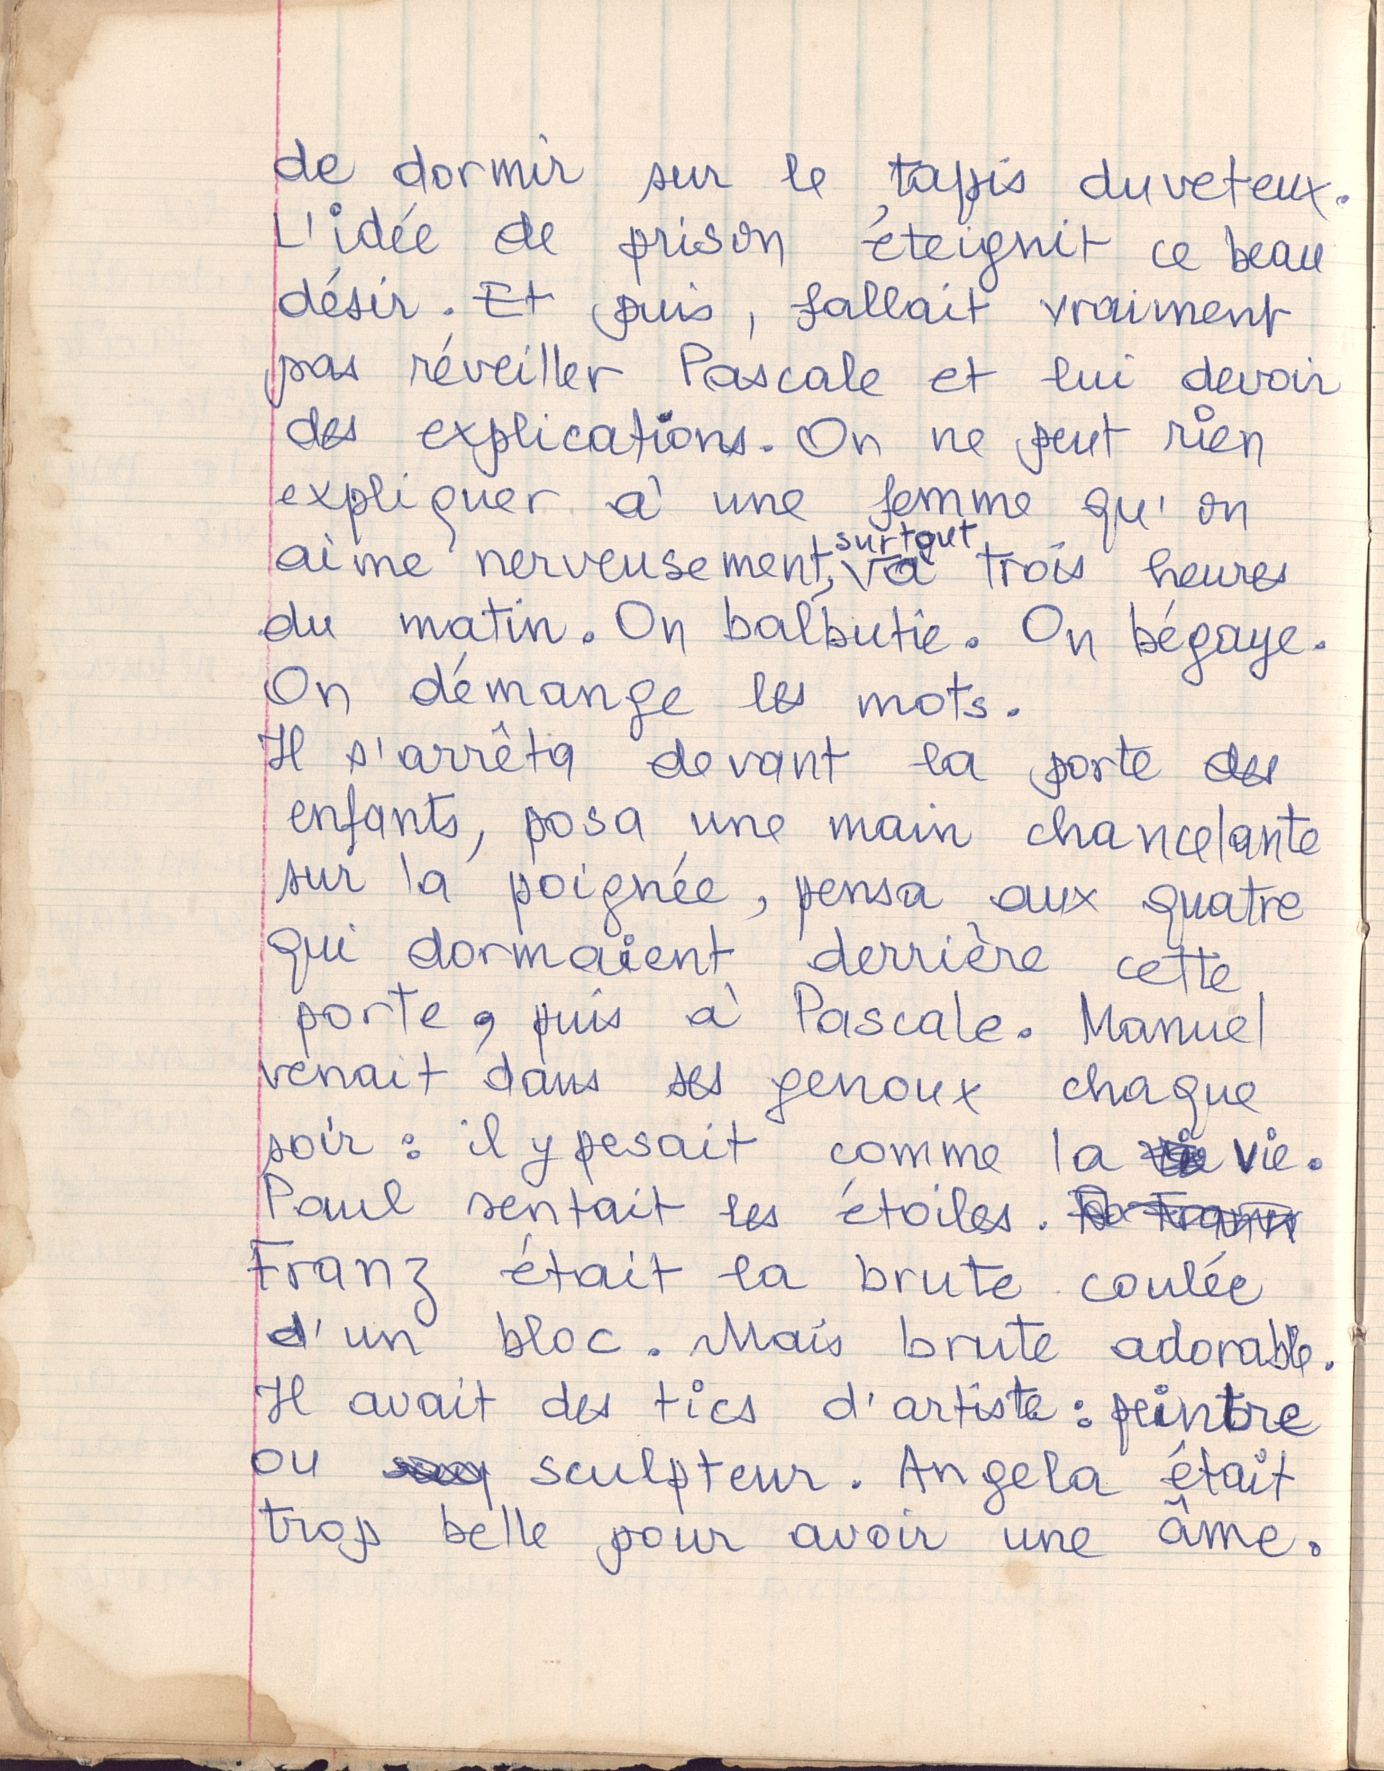 de dormir sur le tapis duveteux.
L'idée de prison éteignit ce beau
désir. Et puis, fallait vraiment
pas réveiller Pascale et lui devoir
des explications. On ne peut rien
expliquer à une femme qu'on
aime nerveusement, surtout à trois heures
du matin. On balbutie. On bégaye.
On démange les mots.
Il s'arrêta devant la porte des
enfants, posa une main chancelante
sur la poignée, pensa aux quatre
qui dormaient derrière cette
porte, puis à Pascale. Manuel
venait dans ses genoux chaque
soir : il y pesait comme la vie.
Paul sentait les étoiles.
Franz était la brute coulée
d'un bloc. Mais brute adorable.
Il avait des tics d'artiste : peintre
ou sculpteur. Angela était
trop belle pour avoir une âme.